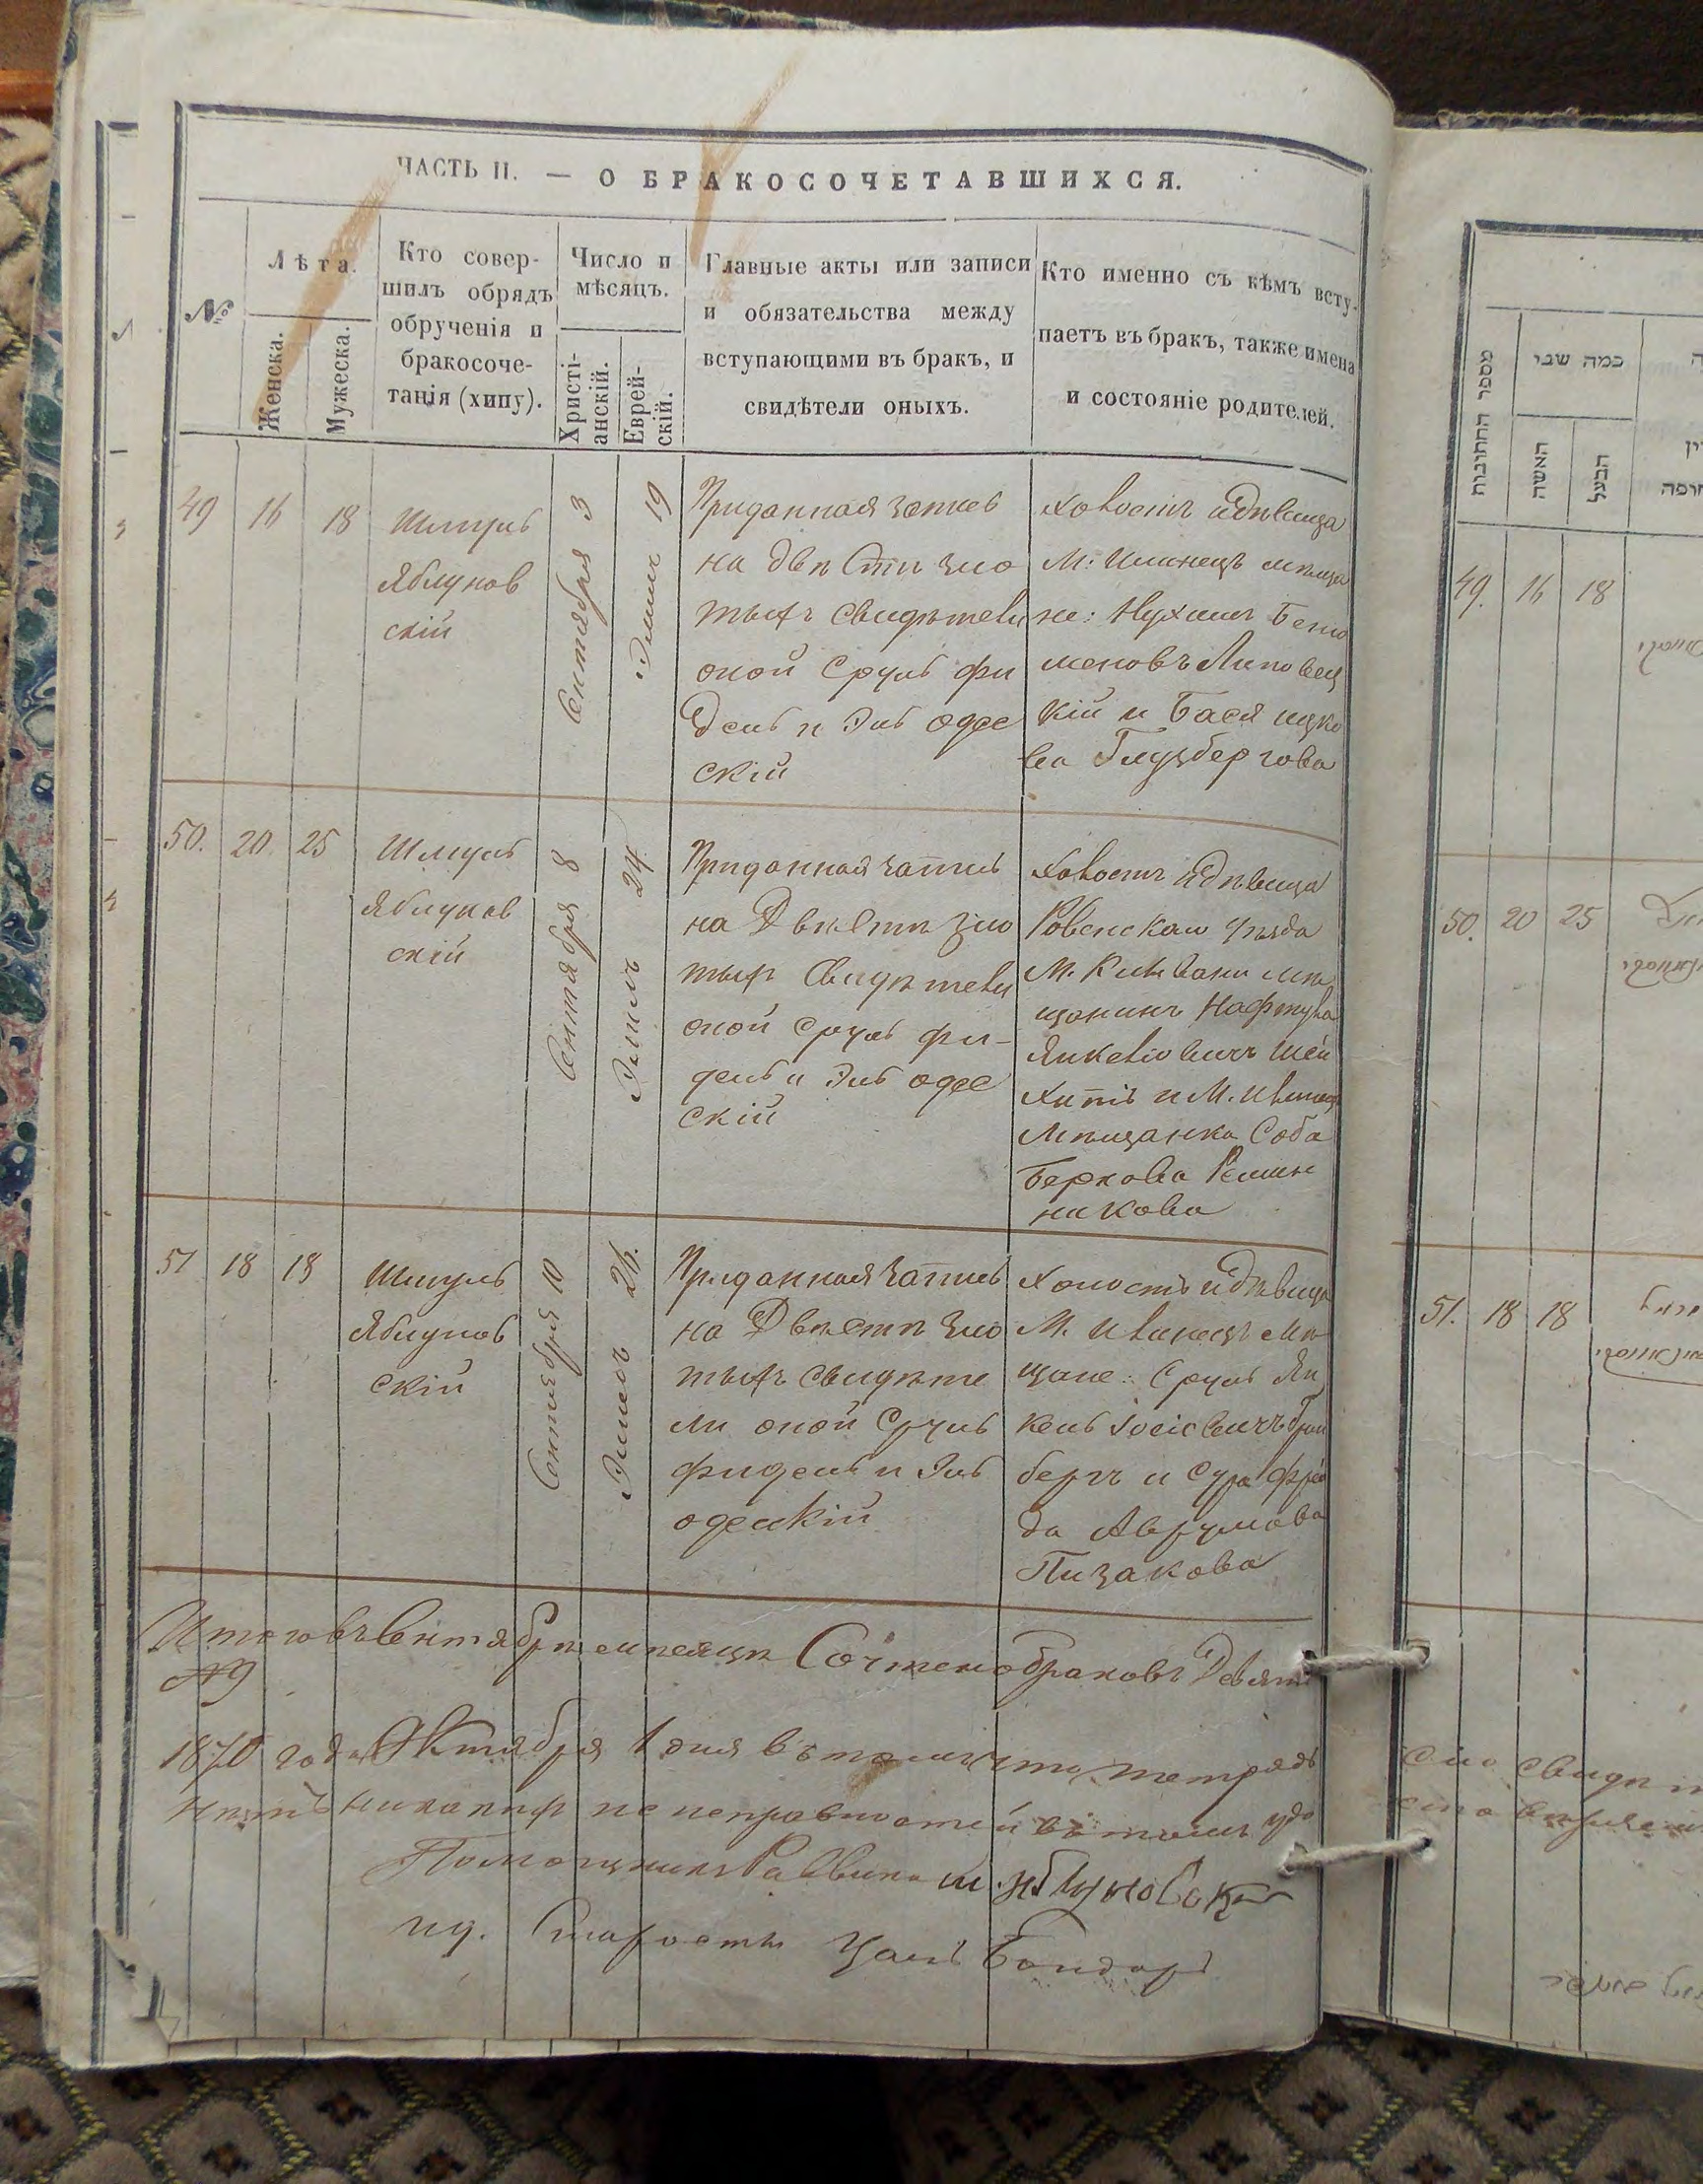 ЧАСТЬ II. — О БРАКОСОЧЕТАВШИХСЯ.
№
Лѣта.
Женска.
Мужеска.
Кто совер-
шилъ обрядъ
обрученія и
бракосоче-
танія (хипу).
Число и
мѣсяцъ.
Христі-
анскій.
Еврей-
скій.
Главные акты или записи
и обязательства между
вступающими въ бракъ, и
свидѣтели оныхъ.
Кто именно съ кѣмъ всту-
паетъ въ бракъ, также имена
и состояніе родителей.
49 16 18
Шмуль
Яблунов
скій
Сентября 3
19
Приданная запись
на двѣ сти зло
тыхъ свидѣтели
оной Сруль фи
дель и Эль одес
скій
Холостъ и дѣвица
М: Илинецъ мѣща
не: Нухимъ
Липовец
кій и Бася ицко
ва Глузбергова
50. 20 25
Шмуль
Яблунов
скій
Сентября 8
24
Приданная запись
на Двѣсти зло
тых Свидѣтели
оной Сруль фи-
дель и Эль одес
скій
Холостъ и дѣвица
Ровенскаго уѣзда
М. Клевани мѣ
щанинъ Нафтула
Янкелювичъ Шей
хитъ и М. Илинец
мѣщанка Соба
Беркова
никова
51 18 18
Шмуль
Яблунов
скій
Сентября 10
26.
Приданная запись
на Двѣсти зло
тыхъ свидѣте
ли оной Сруль
фидель и Эль
одескій
Холостъ и дѣвица
М. Илинецъ мѣ
щане: Сруль Ян
кель
бергъ и Сура фрей
да Аврумова
Пизакова
Итого въ Сентябрѣ мѣсяцѣ Сочтено браковъ Девять
№ 9
1870 года Октября 1 дня въ томъ что тетрядь
никакихъ не исправностей въ томъ удо
Помощникъ Раввина Ш. Яблуновскій
Старосты Бондарь
מספר החתונות
כמה שני
האשה
הבעל
49. 16 18
50. 20 25
51. 18 18